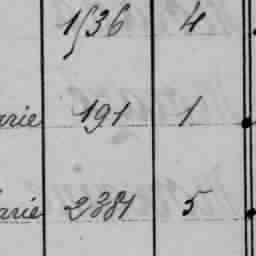 1536 4
arie 191 1
arie 2384 5